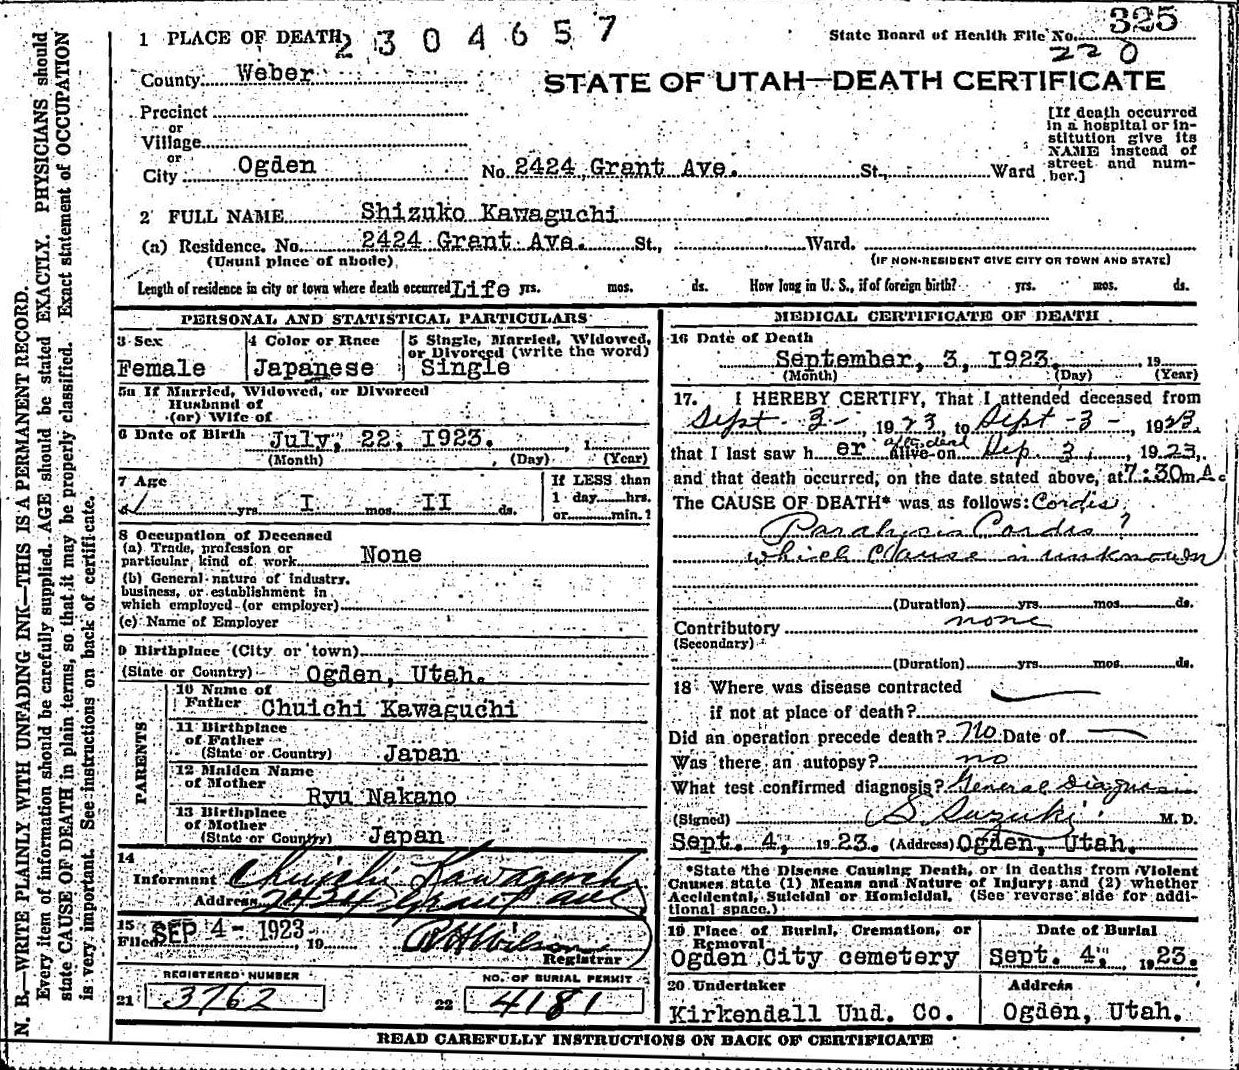 1 PLACE OF DEATH 2304657
State Board of Health File No. 325
220
County Weber
STATE OF UTAH—DEATH CERTIFICATE
Precinct
or
Village
or
City Ogden No. 2424 Grant Ave. St., Ward
[If death occurred
in a hospital or in-
stitution give its
NAME instead of
street and num-
ber.]
2 FULL NAME Shizuko Kawaguchi
(a) Residence. No. 2424 Grant Ave. St., Ward.
(Usual place of abode) (IF NON-RESIDENT GIVE CITY OR TOWN AND STATE)
Length of residence in city or town where death occurred Life yrs. mos. ds. How long in U. S., if of foreign birth? yrs. mos. ds.
PERSONAL AND STATISTICAL PARTICULARS
3 Sex
Female
4 Color or Race
Japanese
5 Single, Married, Widowed,
or Divorced (write the word)
Single
5a If Married, Widowed, or Divorced
Husband of
(or) Wife of
6 Date of Birth July, 22, 1923. , 1
(Month) , (Day) (Year)
7 Age
yrs. I mos. II ds.
If LESS than
1 day hrs.
or min.?
8 Occupation of Deceased
(a) Trade, profession or
particular, kind of work None
(b) General nature of industry,
business, or establishment in
which employed (or employer)
(c) Name of Employer
9 Birthplace (City or town)
(State or Country) Ogden, Utah.
PARENTS
10 Name of
Father Chuichi Kawaguchi
11 Birthplace
of Father
(State or Country) Japan
12 Maiden Name
of Mother
Ryu Nakano
13 Birthplace
of Mother
(State or Country) Japan
14
Informant Chuichi Kawaguchi
Address 2434 Grant ave
15
Filed SEP 4 - 1923, 19
R H Wilson
Registrar
REGISTERED NUMBER
21 3762
NO. OF BURIAL PERMIT
22 4181
MEDICAL CERTIFICATE OF DEATH
16 Date of Death
September, 3, 1923. 19
(Month) (Day) (Year)
17. I HEREBY CERTIFY, That I attended deceased from
Sept - 3 - , 1923, to Sept - 3 - , 1923.
after dead
that I last saw h er alive on Sep. 3, , 1923,
and that death occurred, on the date stated above, at 7:30 m A.
The CAUSE OF DEATH* was as follows: Cordis,
Paralysis Cordis?
which Clause is unknown
(Duration) yrs. mos. ds.
Contributory none
(Secondary)
(Duration) yrs. mos. ds.
18 Where was disease contracted
if not at place of death?
Did an operation precede death? No Date of
Was there an autopsy? no
What test confirmed diagnosis? General Diagnosis
(Signed) S. Suzuki M. D.
Sept. 4, 1923. (Address) Ogden, Utah.
*State the Disease Causing Death, or in deaths from Violent
Causes state (1) Means and Nature of Injury; and (2) whether
Accidental, Suicidal or Homicidal. (See reverse side for addi-
tional space.)
19 Place of Burial, Cremation, or
Removal
Ogden City cemetery
Date of Burial
Sept. 4, 1923.
20 Undertaker
Kirkendall Und. Co.
Address
Ogden, Utah.
READ CAREFULLY INSTRUCTIONS ON BACK OF CERTIFICATE
N. B.—WRITE PLAINLY WITH UNFADING INK—THIS IS A PERMANENT RECORD.
Every item of information should be carefully supplied. AGE should be stated EXACTLY. PHYSICIANS should
state CAUSE OF DEATH in plain terms, so that it may be properly classified. Exact statement of OCCUPATION
is very important. See instructions on back of certificate.